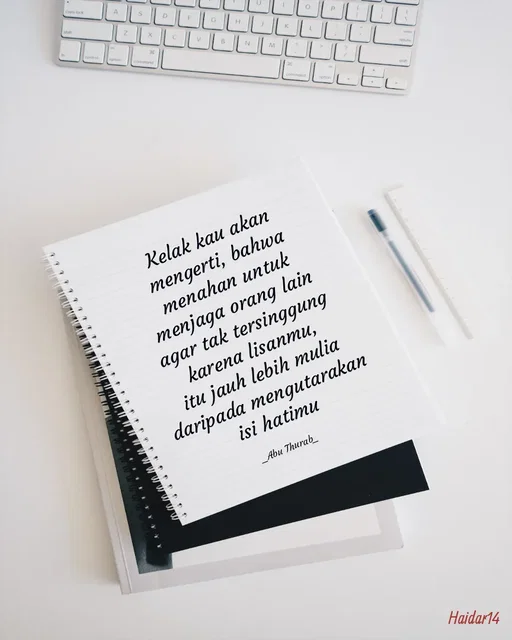 Kelak kau akan
mengerti, bahwa
menahan untuk
menjaga orang lain
agar tak tersinggung
karena lisanmu,
itu jauh lebih mulia
daripada mengutarakan
isi hatimu
_Abu Thurab_
Haidar14